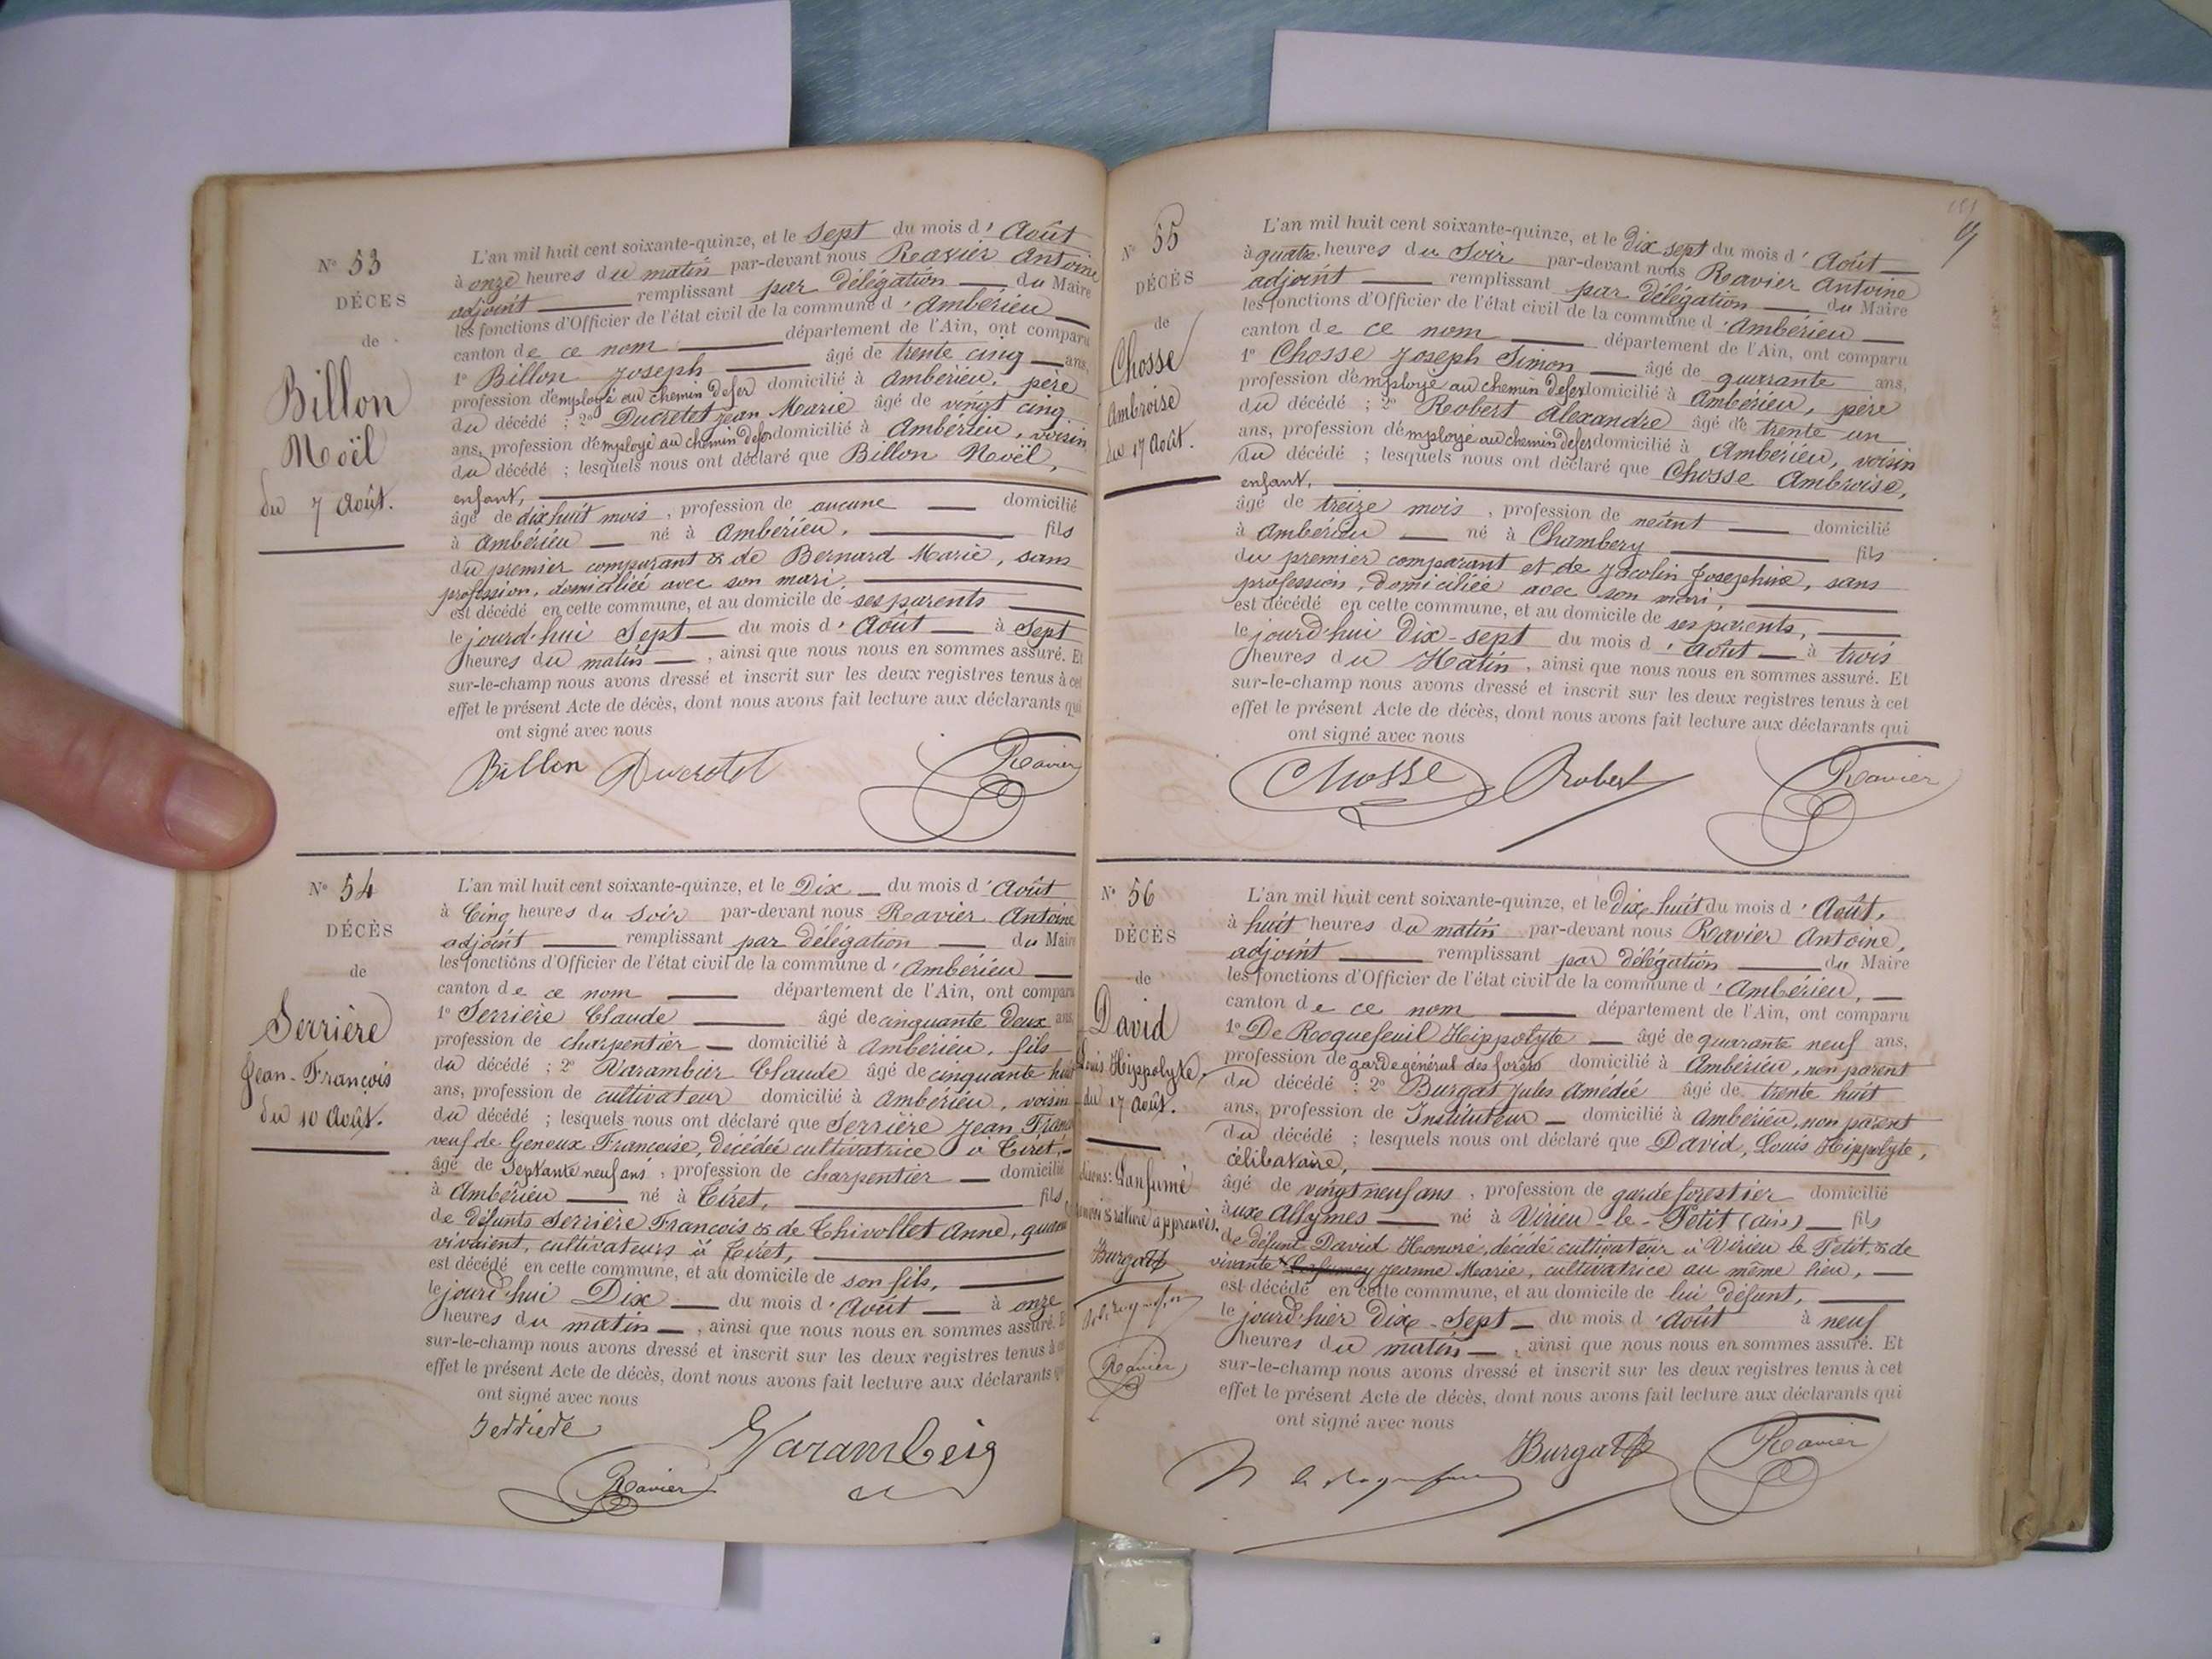 N° 53
DÉCES
de
Billon
Noël
du 7 Août.
L'an mil huit cent soixante-quinze, et le Sept du mois d'Août
à onze heures du matin par-devant nous Ravier Antoine
adjoint remplissant par délégation du Maire
les fonctions d'Officier de l'état civil de la commune d'Ambérieu
canton de ce nom département de l'Ain, ont comparu
1° Billon Joseph âgé de trente cinq ans,
profession d'employé au chemin de fer domicilié à Ambérieu, père
du décédé ; 2° Ducretet Jean Marie âgé de vingt cinq
ans, profession d'employé au chemin de fer domicilié à Ambérieu, voisin
du décédé ; lesquels nous ont déclaré que Billon Noël,
enfant,
âgé de dix huit mois, profession de aucune domicilié
à Ambérieu né à Ambérieu, fils
du premier comparant & de Bernard Marie, sans
profession, domiciliée avec son mari,
est décédé en cette commune, et au domicile de ses parents
le jourd'hui Sept du mois d'Août à Sept
heures du matin, ainsi que nous nous en sommes assuré. Et
sur-le-champ nous avons dressé et inscrit sur les deux registres tenus à cet
effet le présent Acte de décès, dont nous avons fait lecture aux déclarants qui
ont signé avec nous
Billon Ducretet Ravier
N° 54
DÉCÈS
de
Serrière
Jean-François
du 10 Août.
L'an mil huit cent soixante-quinze, et le Dix du mois d'Août
à Cinq heures du Soir par-devant nous Ravier Antoine
adjoint remplissant par délégation du Maire
les fonctions d'Officier de l'état civil de la commune d'Ambérieu
canton de ce nom département de l'Ain, ont comparu
1° Serrière Claude âgé de cinquante deux ans
profession de charpentier domicilié à Ambérieu, fils
du décédé ; 2° Varambier Claude âgé de cinquante huit
ans, profession de cultivateur domicilié à Ambérieu, voisin
du décédé ; lesquels nous ont déclaré que Serrière Jean Franç
veuf de Genoux Françoise, décédée cultivatrice à Tiret,
âgé de Septante neuf ans, profession de charpentier domicilié
à Ambérieu né à Tiret, fils
de défunts Serrière François & de Thivollet Anne, quand
vivaient, cultivateurs à Tiret,
est décédé en cette commune, et au domicile de son fils,
le jourd'hui Dix du mois d'Août à onze
heures du matin, ainsi que nous nous en sommes assuré. E
sur-le-champ nous avons dressé et inscrit sur les deux registres tenus à c
effet le présent Acte de décès, dont nous avons fait lecture aux déclarants q
ont signé avec nous
Serriere Varambeig
Ravier
N° 55
DÉCÈS
de
Chosse
Ambroise
du 17 Août.
L'an mil huit cent soixante-quinze, et le Dix sept du mois d'Août
à quatre heures du Soir par-devant nous Ravier Antoine
adjoint remplissant par délégation du Maire
les fonctions d'Officier de l'état civil de la commune d'Ambérieu
canton de ce nom département de l'Ain, ont comparu
1° Chosse Joseph Simon âgé de quarante ans,
profession d'employé au chemin de fer domicilié à Ambérieu, père
du décédé ; 2° Robert Alexandre âgé de trente un
ans, profession d'employé au chemin de fer domicilié à Ambérieu, voisin
du décédé ; lesquels nous ont déclaré que Chosse Ambroise,
enfant,
âgé de treize mois, profession de néant domicilié
à Ambérieu né à Chambery fils
du premier comparant et de Jacolin Josephine, sans
profession, domiciliée avec son mari,
est décédé en cette commune, et au domicile de ses parents,
le jourd'hui Dix-sept du mois d'Août à trois
heures du Matin, ainsi que nous nous en sommes assuré. Et
sur-le-champ nous avons dressé et inscrit sur les deux registres tenus à cet
effet le présent Acte de décès, dont nous avons fait lecture aux déclarants qui
ont signé avec nous
Chosse Robert Ravier
N° 56
DÉCÈS
de
David
Louis Hippolyte,
du 17 Août.
disons: Lanfumé
renvoi & rature approuvés.
Burgat
Ravier
L'an mil huit cent soixante-quinze, et le Dix huit du mois d'Août,
à huit heures du matin par-devant nous Ravier Antoine,
adjoint remplissant par délégation du Maire
les fonctions d'Officier de l'état civil de la commune d'Ambérieu,
canton de ce nom département de l'Ain, ont comparu
1° De Roquefeuil Hippolyte âgé de quarante neuf ans,
profession de garde général des forêts domicilié à Ambérieu, non parent
du décédé : 2° Burgat Jules Amédée âgé de trente huit
ans, profession de Instituteur domicilié à Ambérieu, non parent
du décédé ; lesquels nous ont déclaré que David, Louis Hippolyte,
célibataire,
âgé de vingt neuf ans, profession de garde forestier domicilié
aux Allymes né à Virieu-le-Petit (ain) fils
de défunt David Honoré, décédé cultivateur à Virieu le Petit, & de
vivante Jeanne Marie, cultivatrice au même lieu,
est décédé en cette commune, et au domicile de lui défunt,
le jourd'hier Dix-Sept du mois d'Août à neuf
heures du matin, ainsi que nous nous en sommes assuré. Et
sur-le-champ nous avons dressé et inscrit sur les deux registres tenus à cet
effet le présent Acte de décès, dont nous avons fait lecture aux déclarants qui
ont signé avec nous
H de Roquefeuil Burgat Ravier